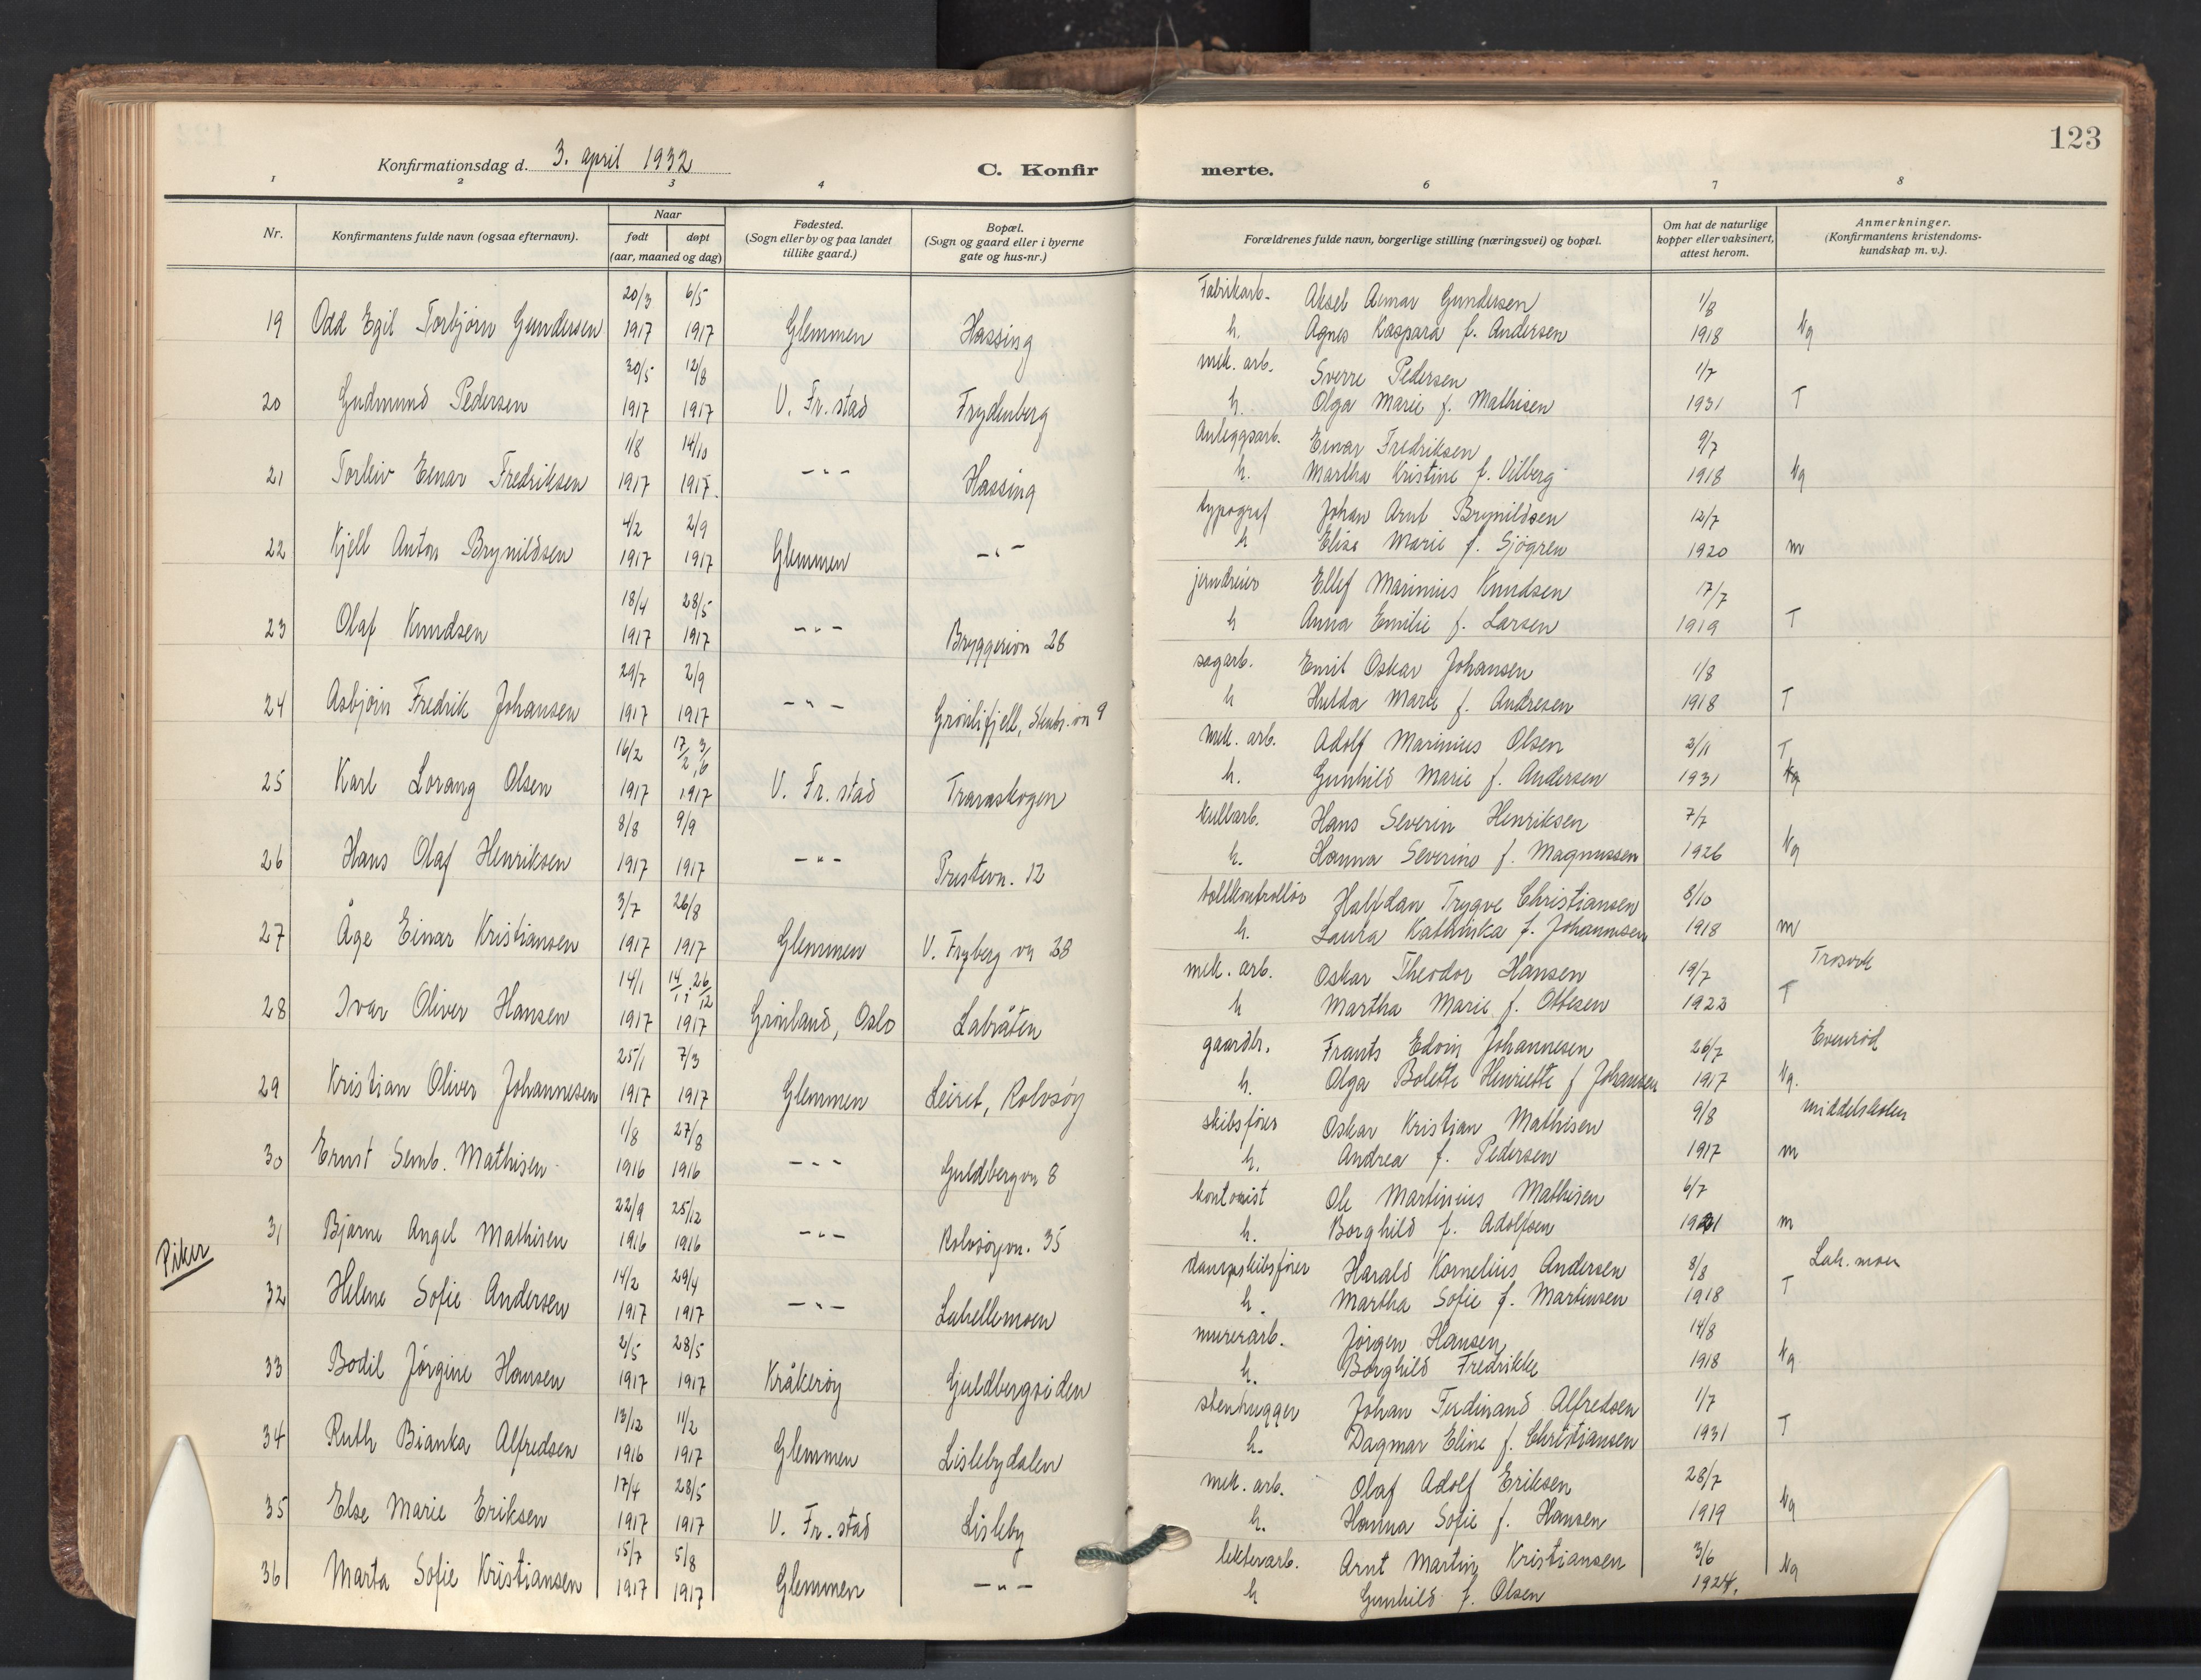 123
Konfirmationsdag d. 3. april 1932
C. Konfirmerte.
1 2 3 4 6 7 8
Nr.
Konfirmantens fulde navn (ogsaa efternavn).
Naar
født døpt
(aar, maaned og dag)
Fødested.
(Sogn eller by og paa landet
tillike gaard.)
Bopæl.
(Sogn og gaard eller i byerne
gate og hus-nr.)
Forældrenes fulde navn, borgerlige stilling (næringsvei) og bopæl.
Om hat de naturlige
kopper eller vaksinert,
attest herom.
Anmerkninger.
(Konfirmantens kristendoms-
kundskap m. v.).
20/3 6/5 Fabrikarb. Aksel Annar Gundersen 1/8
19 Odd Egil Torbjørn Gundersen 1917 1917 Glemmen Hassing h. Agnes Kaspara f. Andersen 1918 Ng
30/5 12/8 mek. arb. Sverre Pedersen 1/7
20 Gudmund Pedersen 1917 1917 V. Fr. stad Frydenberg h. Olga Marie f. Mathisen 1931 T
1/8 14/10 Anleggsarb. Einar Fredriksen 9/7
21 Torleiv Einar Fredriksen 1917 1917. - " - Hassing h. Martha Kristine f. Vilberg 1918 Ng
4/2 2/9 typograf Johan Arnt Brynildsen 12/7
22 Kjell Anton Brynildsen 1917 1917 Glemmen - " - h Elise Marie f. Sjögren 1920 m
18/4 28/5 jerndreier Ellef Marinius Knudsen 17/7
23 Olaf Knudsen 1917 1917 - " - Bryggerivn 28 h Anna Emilie f. Larsen 1919 T
29/7 2/9 sagarb. Emil Oskar Johansen 1/8
24 Asbjørn Fredrik Johansen 1917 1917 - " - Grønlifjell, 9 h Hulda Marie f. Andresen 1918 T
16/2 17/2, 3/6 mek. arb. Adolf Marinius Olsen 2/11 T
25 Karl Lorang Olsen 1917 1917 V. Fr. stad Traraskogen h. Gunhild Marie f. Andersen 1931
8/8 9/9 kullarb. Hans Severin Henriksen 7/7
26 Hans Olaf Henriksen 1917 1917 - " - Prestevn. 12 h. Hanna Severine f. Magnussen 1926 Ng
3/7 26/8 tollkontrollør Halfdan Trygve Christiansen 8/10
27 Åge Einar Kristiansen 1917 1917 Glemmen V. Fryberg vn 38 h. Laura Kathinka f. Johannesen 1918 m
14/1 14/11, 26/12 mek. arb. Oskar Theodor Hansen 19/7 Trosvik
28 Ivar Oliver Hansen 1917 1917 Grønland, Oslo Labråten h Martha Marie f. Ottesen 1923 T
25/1 7/3 gaardbr. Frants Edvin Johannesen 26/7 Evenrød
29 Kristian Oliver Johannesen 1917 1917 Glemmen Leiret, Rolvsøy h. Olga Bolette Henriette f Johansen 1917 Ng.
1/8 27/8 skibsfører Oskar Kristian Mathisen 9/8 middelskolen
30 Ernst Semb. Mathisen 1916 1916 - " - Guldbergvn 8 h. Andrea f. Pedersen 1917 m
22/9 25/12 kontorist Ole Martinius Mathisen 6/7
31 Bjarne Angel Mathisen 1916 1916 - " - Rolvsøyvn. 35 h. Borghild f. Adolfsen 1921 m
Piker
14/2 29/4 dampskibsfører Harald Kornelius Andersen 8/8 Lah. moen
32 Helene Sofie Andersen 1917 1917 - " - Lahellemoen h. Martha Sofie f. Martinsen 1918 T
2/5 28/5 murerarb. Jørgen Hansen 14/8
33 Bodil Jørgine Hansen 1917 1917 Kråkerøy Guldbergsiden h. Borghild Fredrikke 1918 Ng
13/12 11/2 stenhugger Johan Ferdinand Alfredsen 1/7
34 Ruth Bianka Alfredsen 1916 1917 Glemmen Lislebydalen h. Dagmar Eline f. Christiansen 1931 T
17/4 28/5 mek. arb. Olaf Adolf Eriksen 28/7
35 Else Marie Eriksen 1917 1917 V. Fr. stad Lisleby h. Hanna Sofie f. Hansen 1919 Ng
15/7 5/8 lektevarb. Arnt Martin Kristiansen 3/6
36 Marta Sofie Kristiansen 1917 1917 Glemmen - " - h Gunhild f. Olsen 1924. Ng